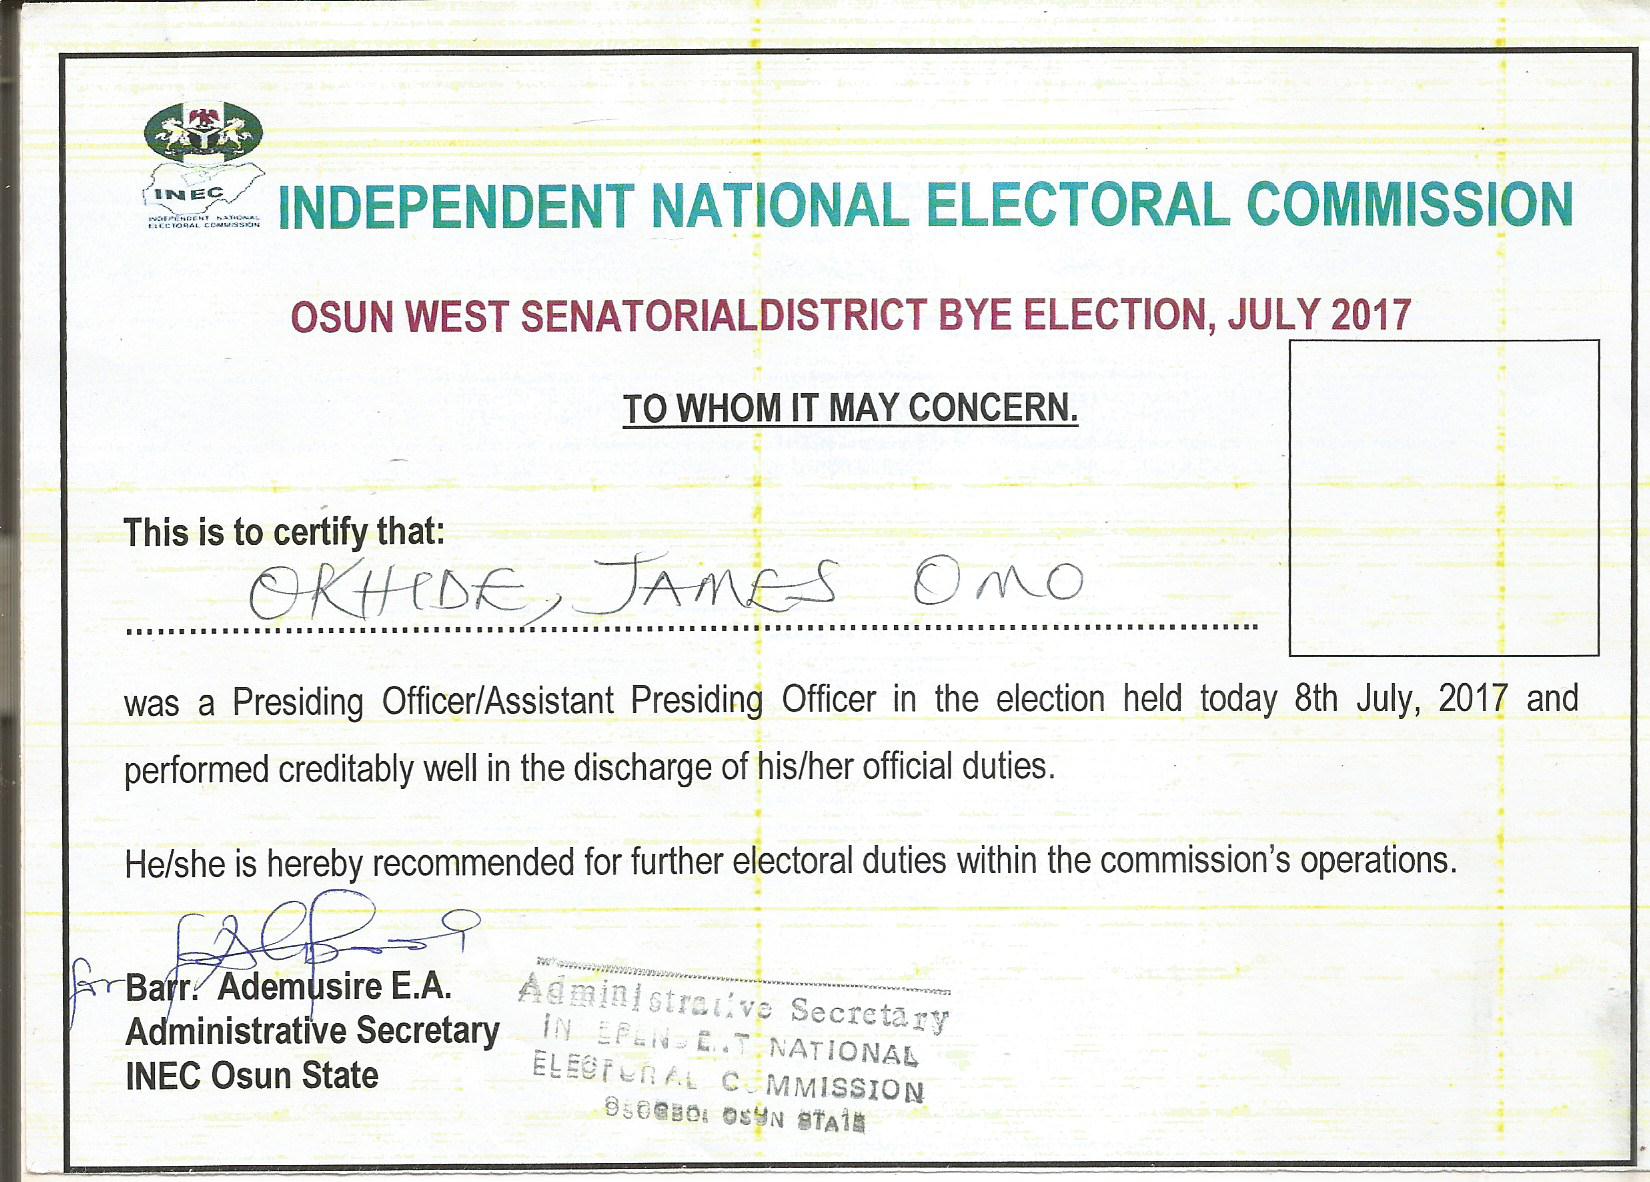 INEC
INDEPENDENT NATIONAL
ELECTORAL COMMISSION
INDEPENDENT NATIONAL ELECTORAL COMMISSION
OSUN WEST SENATORIALDISTRICT BYE ELECTION, JULY 2017
TO WHOM IT MAY CONCERN.
This is to certify that:
OKHIDE, JAMES OMO
was a Presiding Officer/Assistant Presiding Officer in the election held today 8th July, 2017 and
performed creditably well in the discharge of his/her official duties.
He/she is hereby recommended for further electoral duties within the commission's operations.
for Barr. Ademusire E.A.
Administrative Secretary
INEC Osun State
Administrative Secretary
INDEPENDENT NATIONAL
ELECTORAL COMMISSION
OSUN STATE